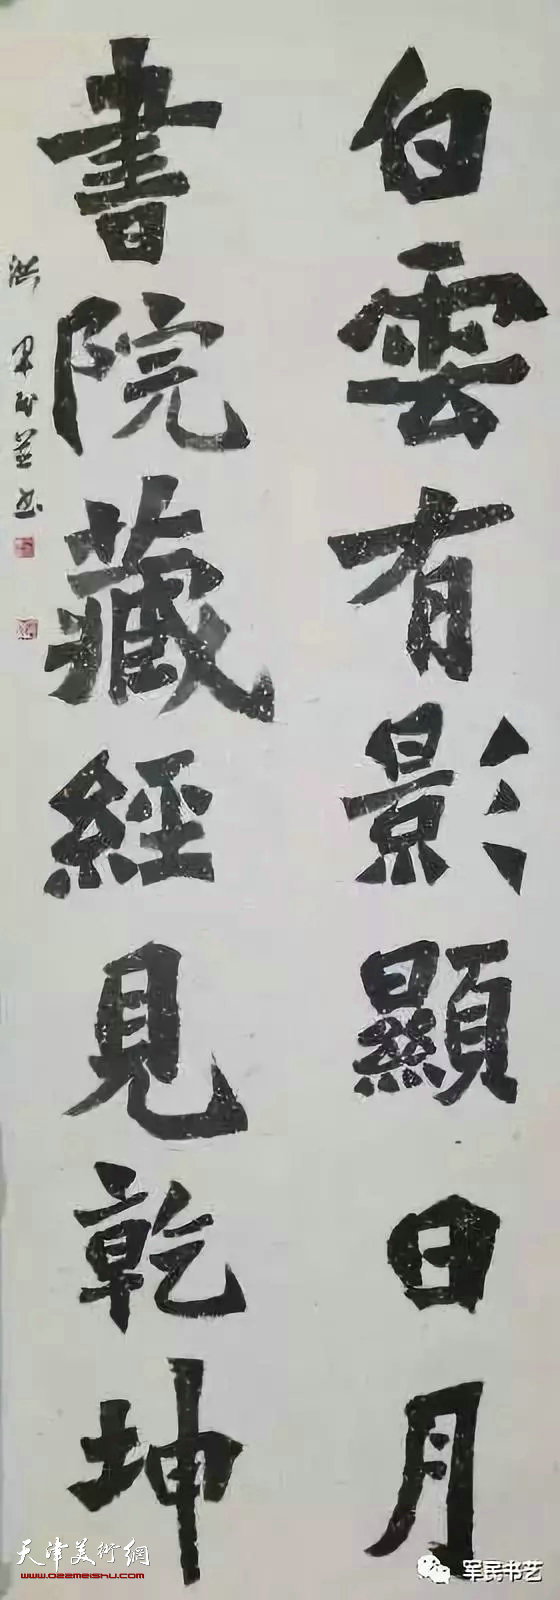 白雲有影顯日月
書院藏經見乾坤
天津美術網
www.022meishu.com
军民书艺